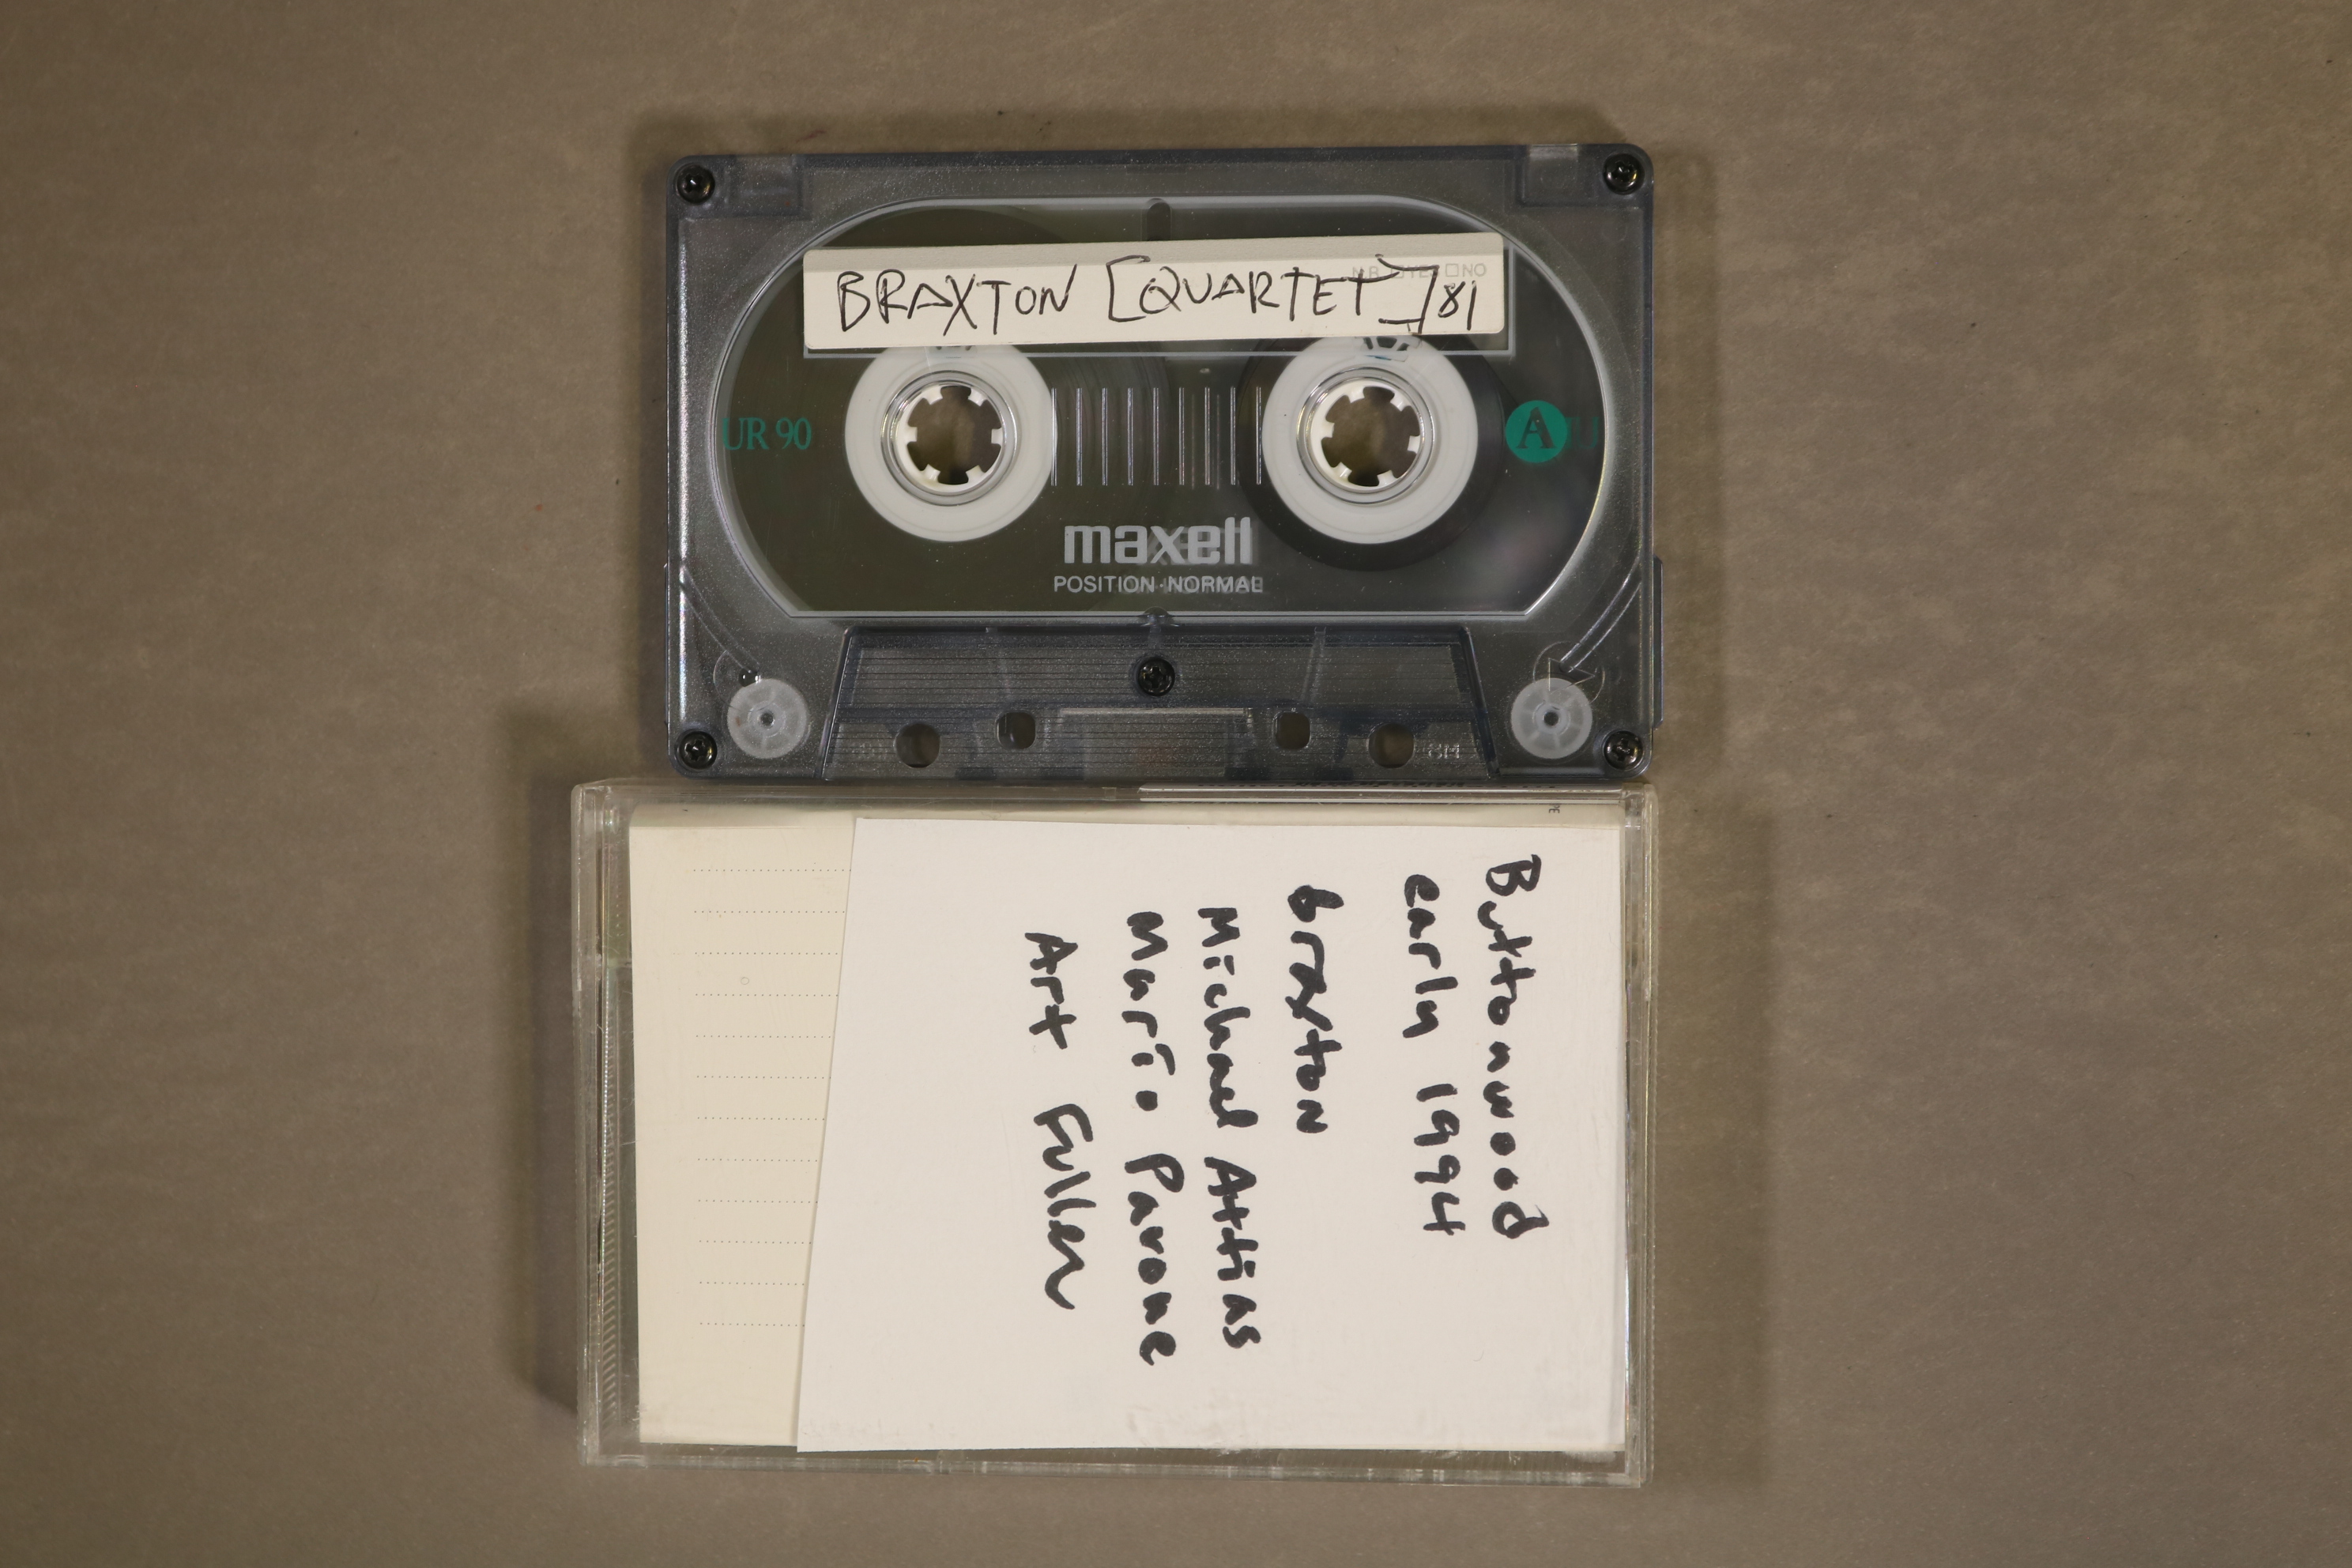 BRAXTON [QUARTET] 81
N.R. □YES □NO
UR 90
A
maxell
POSITION·NORMAL
Buttonwood
early 1994
braxton
Michael Attias
Mario Pavone
Art Fuller